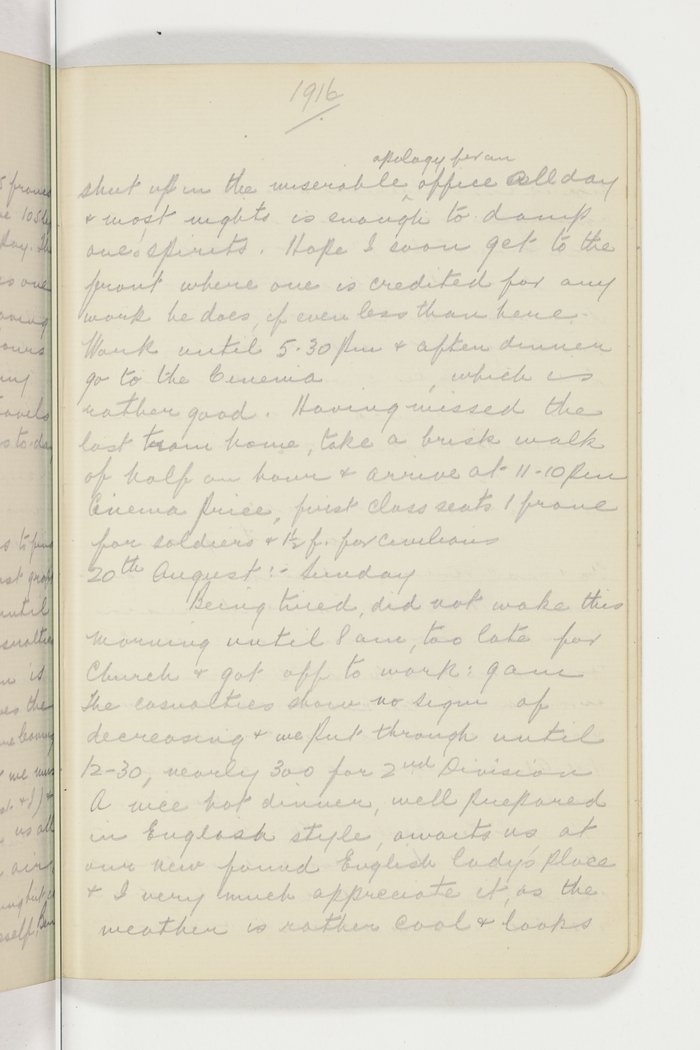 1916
apology for an
shut up in the miserable ^ office all day
& most nights is enough to damp
one's spirits. Hope I soon get to the
front where one is credited for any
work he does, if even less than here.
Work until 5-30 pm & after dinner
go to the Cinema , which is
rather good. Having missed the
last tram home, take a brisk walk
of half an hour & arrive at 11-10 pm
Cinema Price, first class seats 1 franc
for soldiers & 1½ f. for civilians
20th August :- Sunday
Being tired, did not wake this
morning until 8 am, too late for
Church & got off to work: 9 am
The casualties show no sign of
decreasing & we put through until
12-30, nearly 300 for 2nd Division
A nice hot dinner, well prepared
in English style, awaits us at
our new found English lady's place
& I very much appreciate it, as the
weather is rather cool & looks